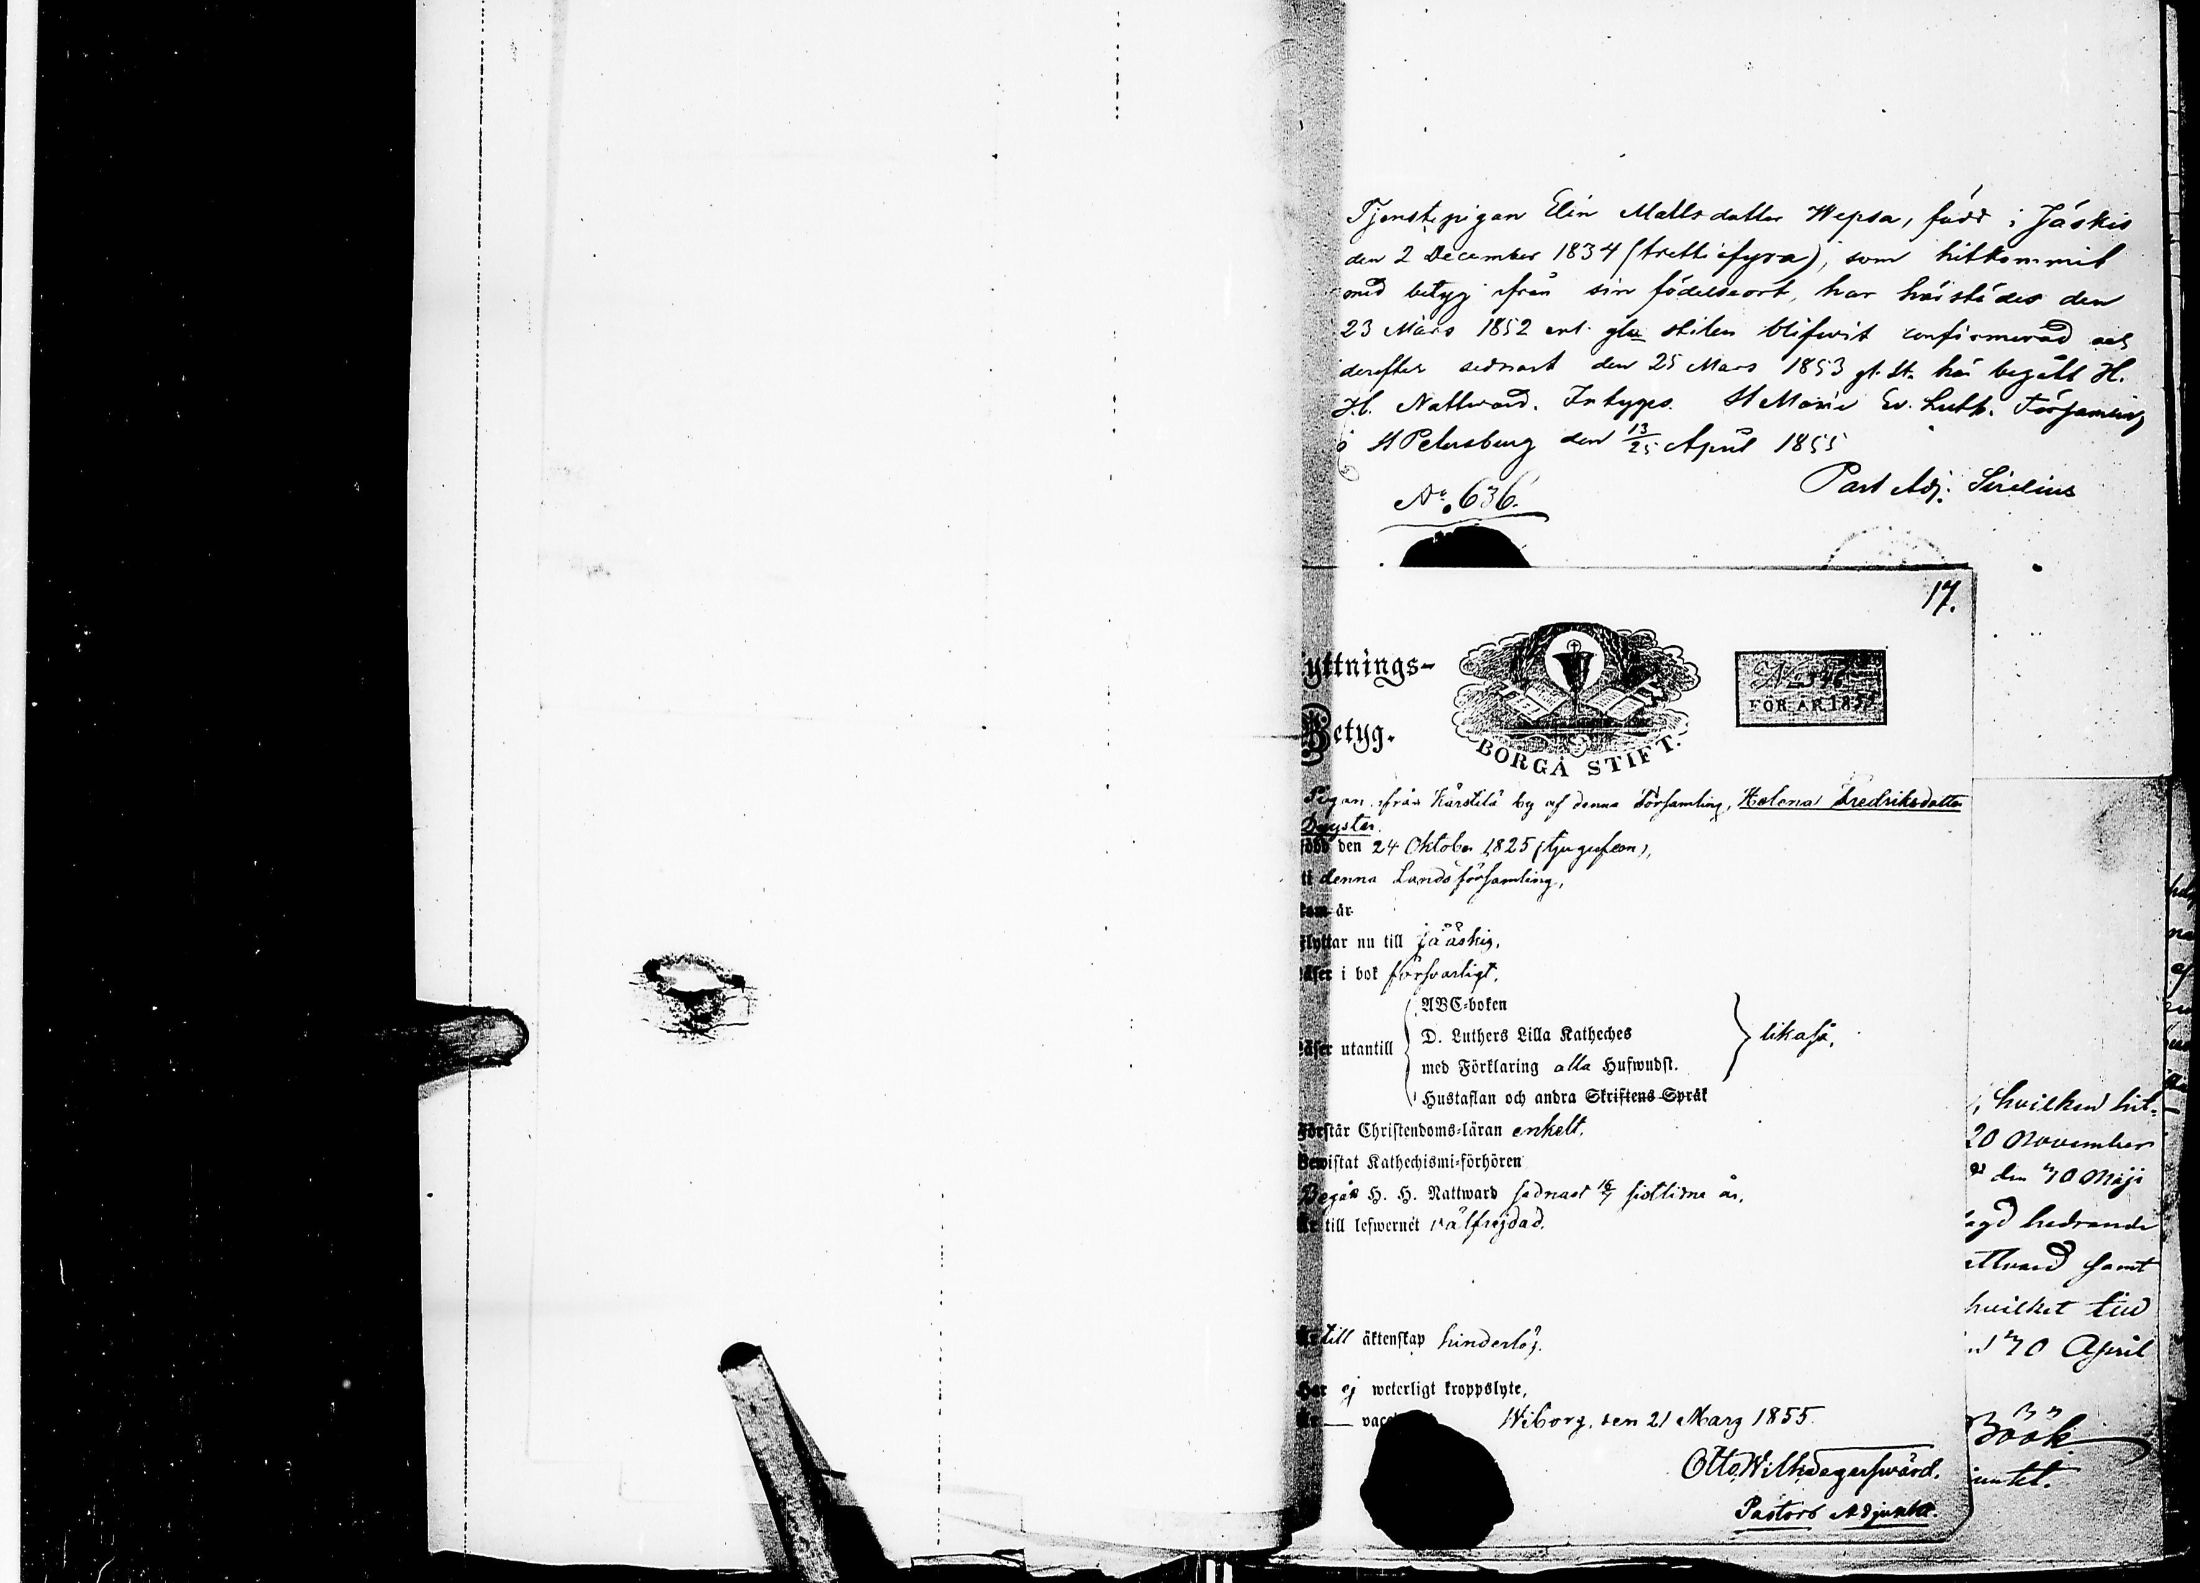 Tjenstepigan Elin Mattsdotter Wepsa, född i Jäskis
den 2 December 1834 (trettiofyra), som hitkommit
med betyg ifrån sin födelseort, har härstädes den
23 Mars 1852 enl. gla stilen blifwit confirmerad och
derefter sednast den 25 Mars 1853 gl. st. här begått H.
H. Nattward. Intygas. St Marie Ev. Luth. Församling
i St Petersburg den 13/25 April 1855
Past Adj. Sirelius
No. 636.
17.
yttnings-
Betyg.
BORGÅ STIFT.
FÖR ÅR 185
Pigan ifrån Kärstilä by af denna Församling, Helena Fredriksdotter
född den 24 Oktober 1825 (tjugufem),
i denna Landsförsamling,
kom år
flyttar nu till Jääskis,
läser i bok försvarligt,
läser utantill
ABC-boken
D. Luthers Lilla Katheches
med Förklaring alla Hufwudst.
Hustaflan och andra Skriftens Språk
likaså,
Förstår Christendoms-läran enkelt,
Bewistat Kathechismi-förhören
Begått H. H. Nattward sednast 16/7 sistlidne år,
Är till lefwernet välfrejdad.
Är till äktenskap hinderlös.
Har ej weterligt kroppslyte,
Wiborg, den 21 Mars 1855.
Otto Wilh. Degersvärd.
Pastors Adjunkt.
, hvilken hit-
20 November
den 30 Maji
agd hedrande
attvard samt
hvilket till
30 April
Böök
unkt.